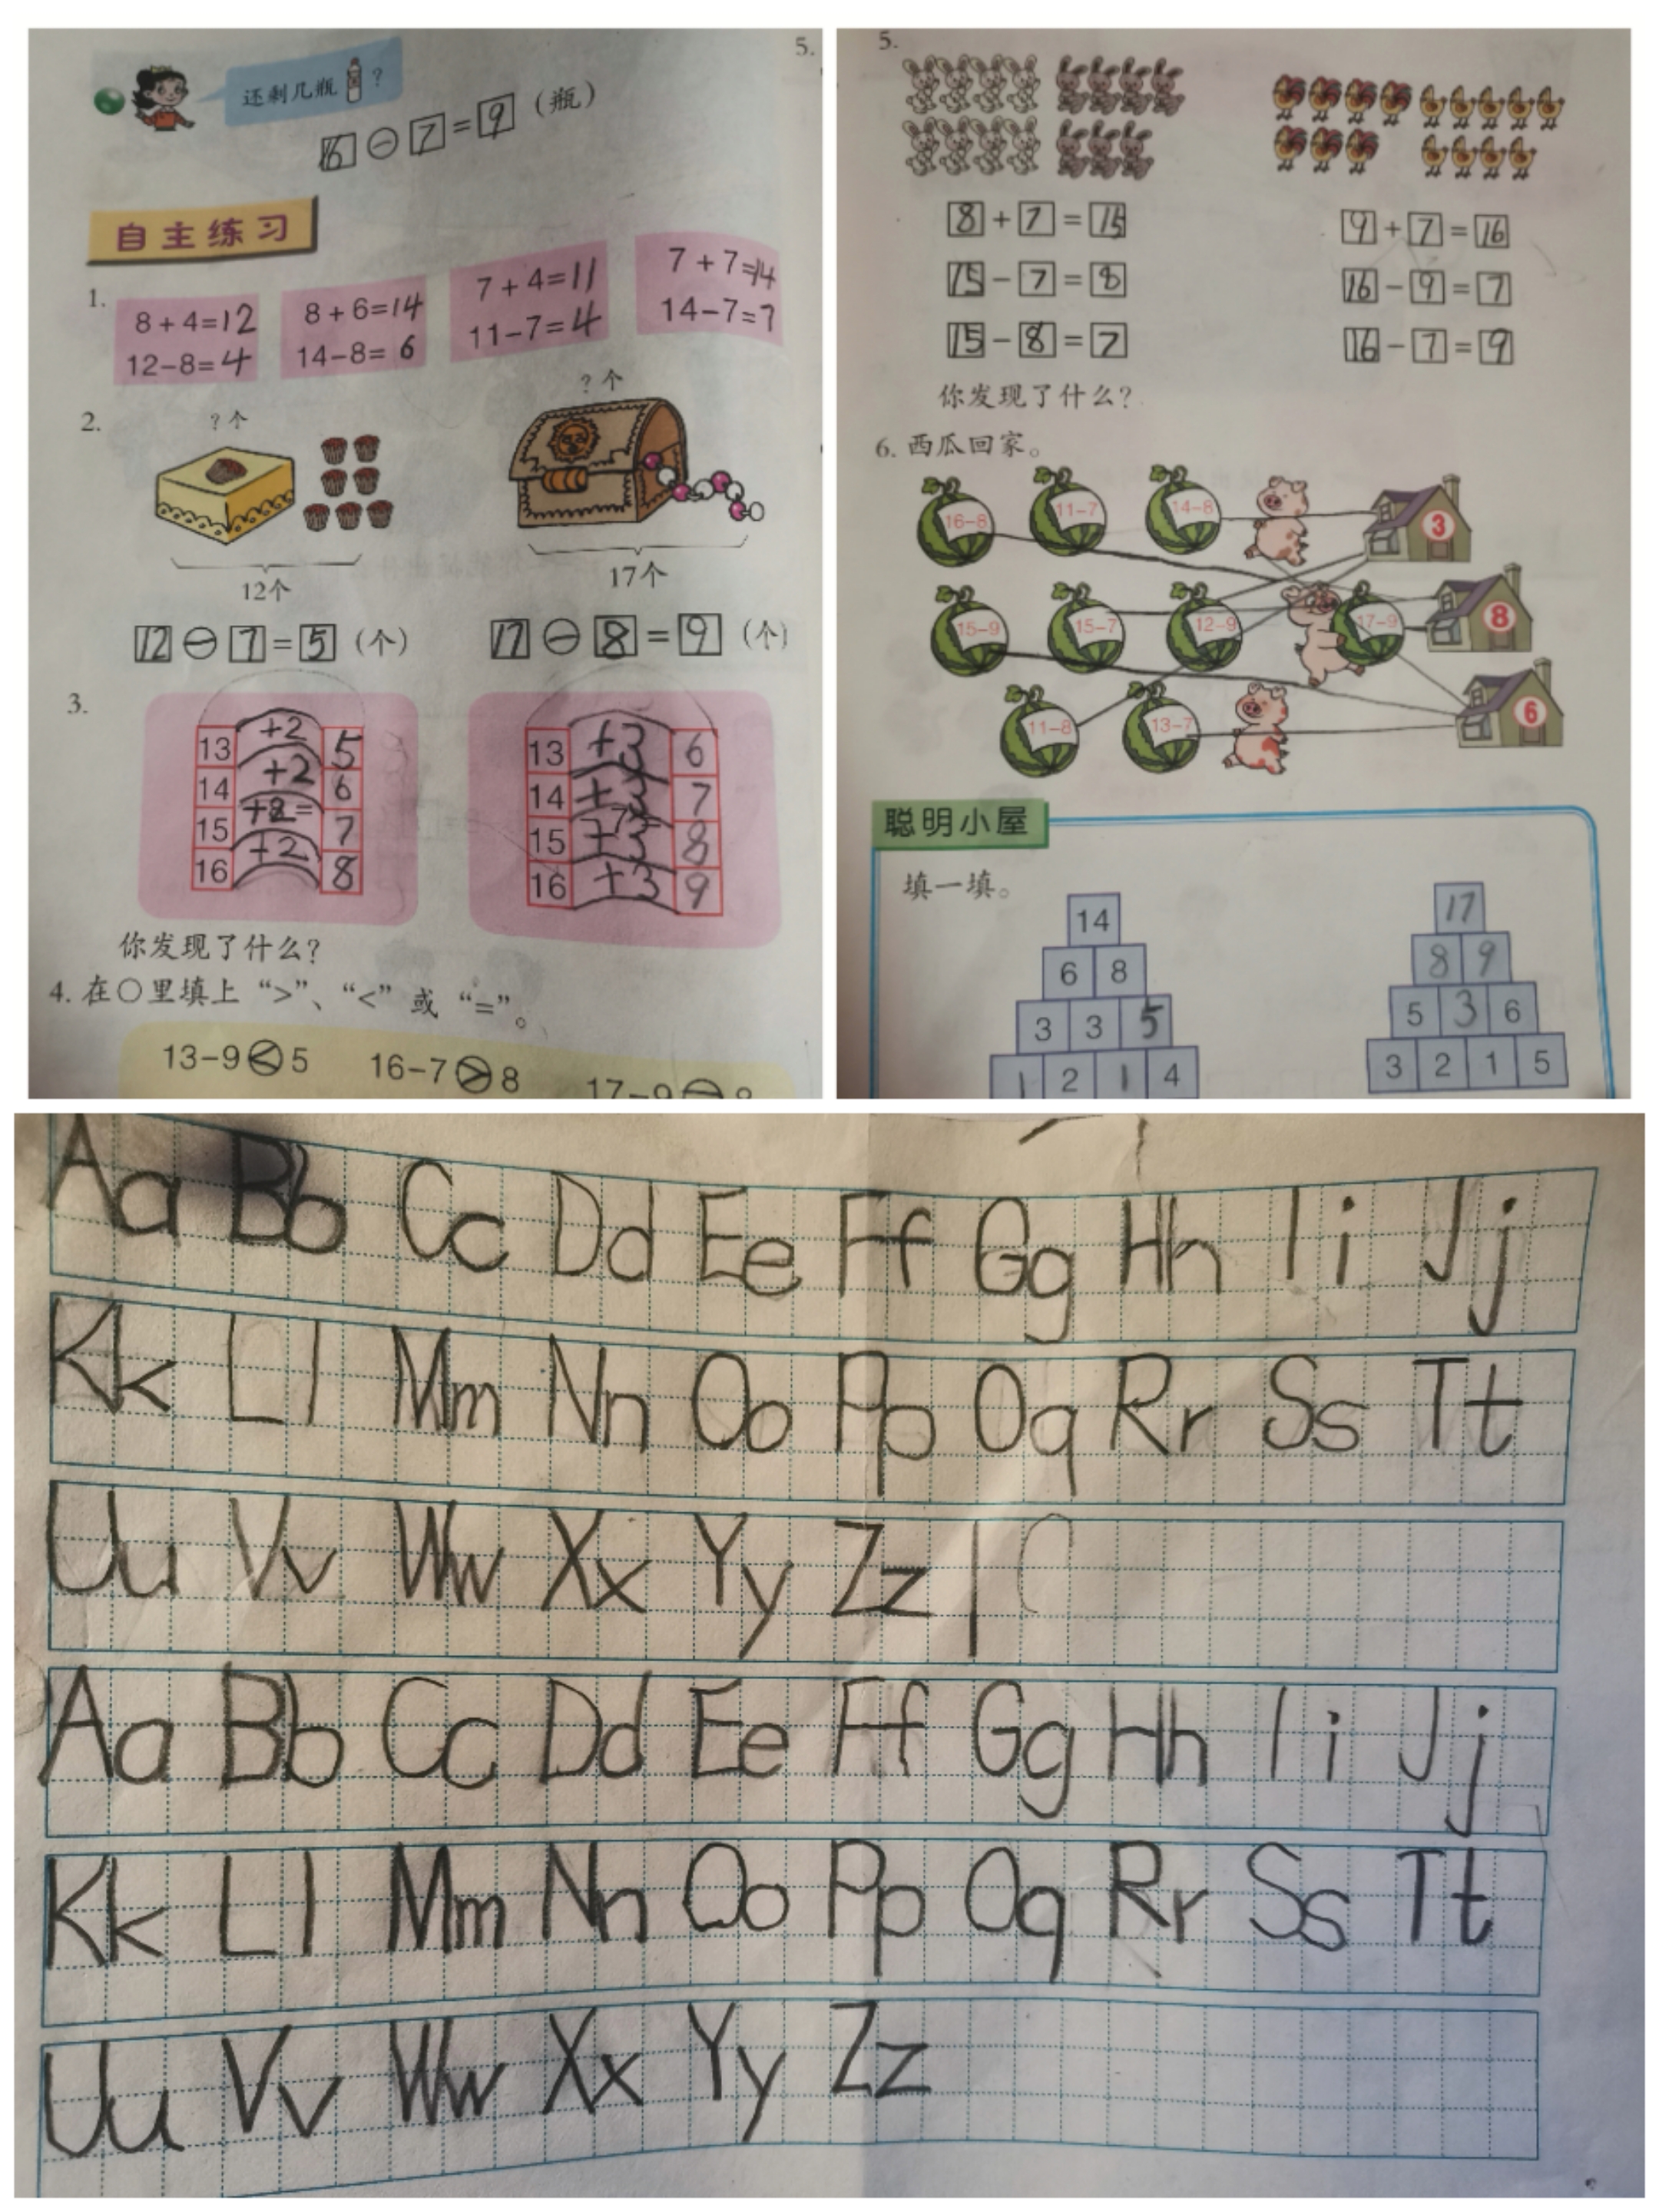 还剩几瓶？
16-7=9（瓶）
自主练习
1.
8+4=12 8+6=14 7+4=11 7+7=14
12-8=4 14-8=6 11-7=4 14-7=7
2.
?个 ?个
12个 17个
12-7=5（个） 17-8=9（个）
3.
13 +2 5 13 +3 6
14 +2 6 14 +3 7
15 7 15 +3 8
16 +2 8 16 +3 9
你发现了什么？
4. 在○里填上“>”、“<”或“=”。
13-9<5 16-7>8 17-9
5.
5.
8+7=15 9+7=16
15-7=8 16-9=7
15-8=7 16-7=9
你发现了什么？
6. 西瓜回家。
16-8 11-7 14-8 3
15-9 15-7 12-9 17-9 8
11-8 13-7 6
聪明小屋
填一填。
14 17
6 8 8 9
3 3 5 5 3 6
1 2 1 4 3 2 1 5
Aa Bb Cc Dd Ee Ff Gg Hh Ii Jj
Kk Ll Mm Nn Oo Pp Oq Rr Ss Tt
Uu Vv Ww Xx Yy Zz
Aa Bb Cc Dd Ee Ff Gg Hh Ii Jj
Kk Ll Mm Nn Oo Pp Oq Rr Ss Tt
Uu Vv Ww Xx Yy Zz